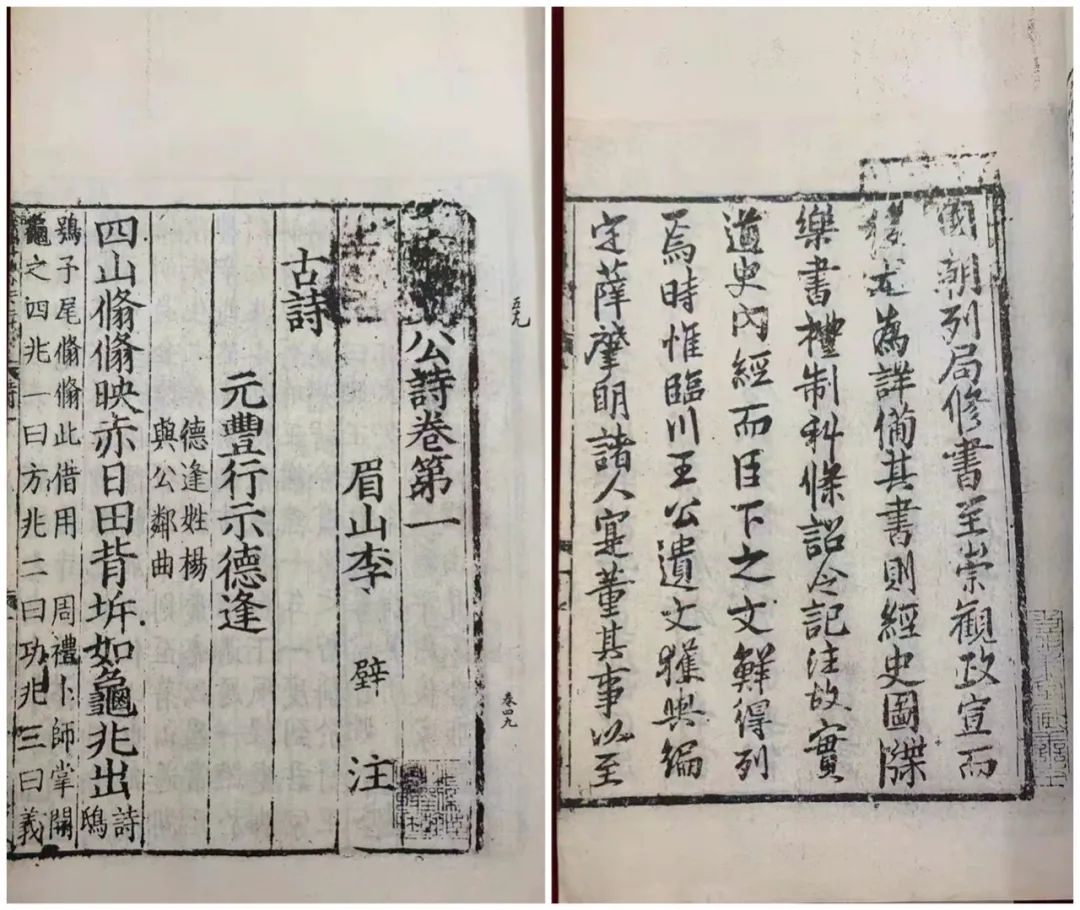 公詩卷第一
眉山李 壁 注
古詩
元豐行示德逢
德逢姓楊
與公鄰曲
四山翛翛映赤日田背坼如龜兆出詩鴟
鴞子尾翛翛此借用 周禮卜師掌開
龜之四兆一曰方兆二曰功兆三曰義
五九
卷四九
國朝列局修書至崇觀政宣而
後尤為詳備其書則經史圖牒
樂書禮制科條詔令記注故實
道史內經而臣下之文鮮得列
焉時惟臨川王公遺文獲與編
定薛肇明諸人寔董其事以至